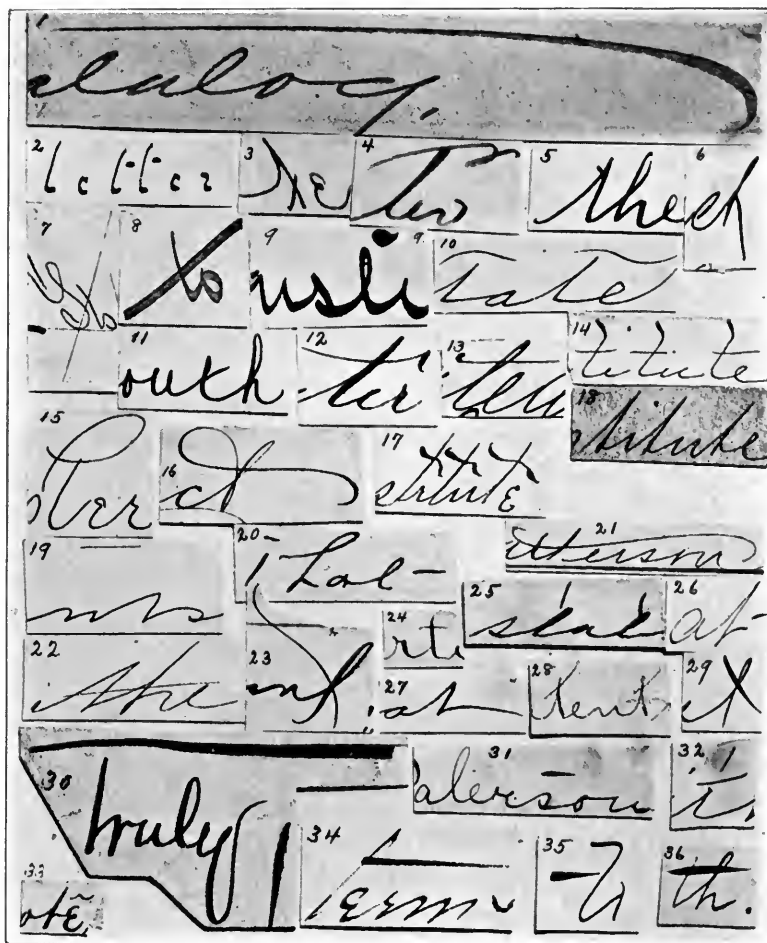 1
atalog,
2 letter 3 the 4 Two 5 the 6 ch
7 8 to 9 usti 9 10 Tate
11 outh 12 ter 13 14 titute
15 ster 16 ct 17 stitute 18 stitute
19 nts 20 That 21 etterson
22 the 23 24 rt 25 state 26 at
27 at 28 tent 29 ct
30 truly 31 aterson 32
33 ote 34 Term 35 36 th.